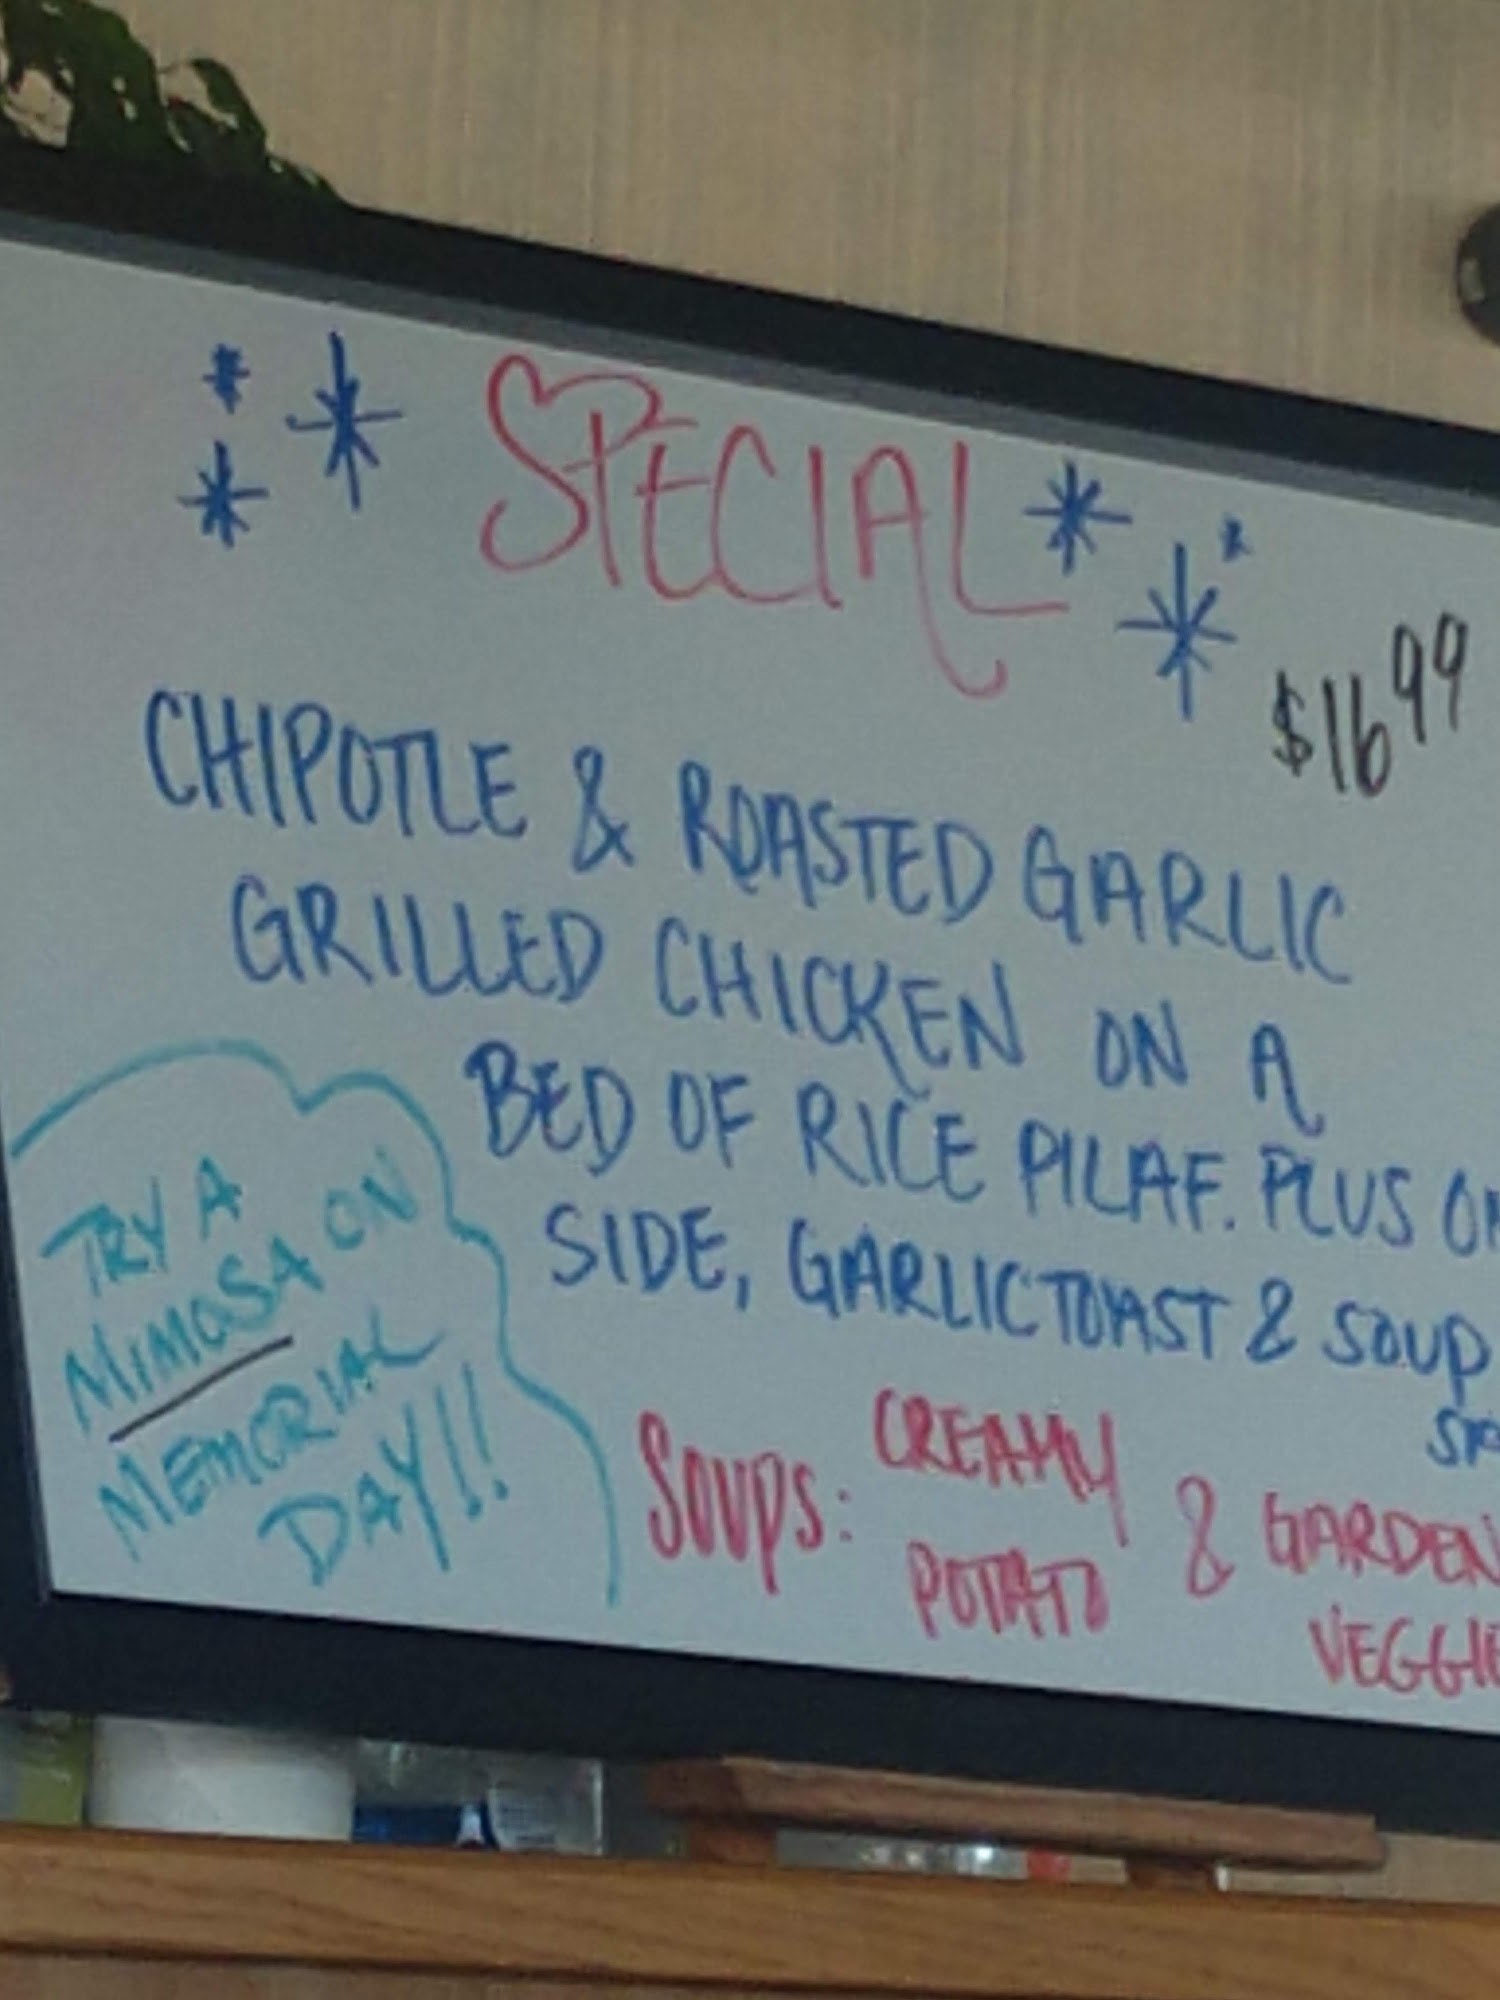 SPECIAL
$16.99
CHIPOTLE & ROASTED GARLIC
GRILLED CHICKEN ON A
BED OF RICE PILAF. PLUS
SIDE, GARLIC TOAST & SOUP
TRY A
MIMOSA ON
MEMORIAL
DAY!!
SOUPS: CREAMY
POTATO
& GARDEN
VEGGIE